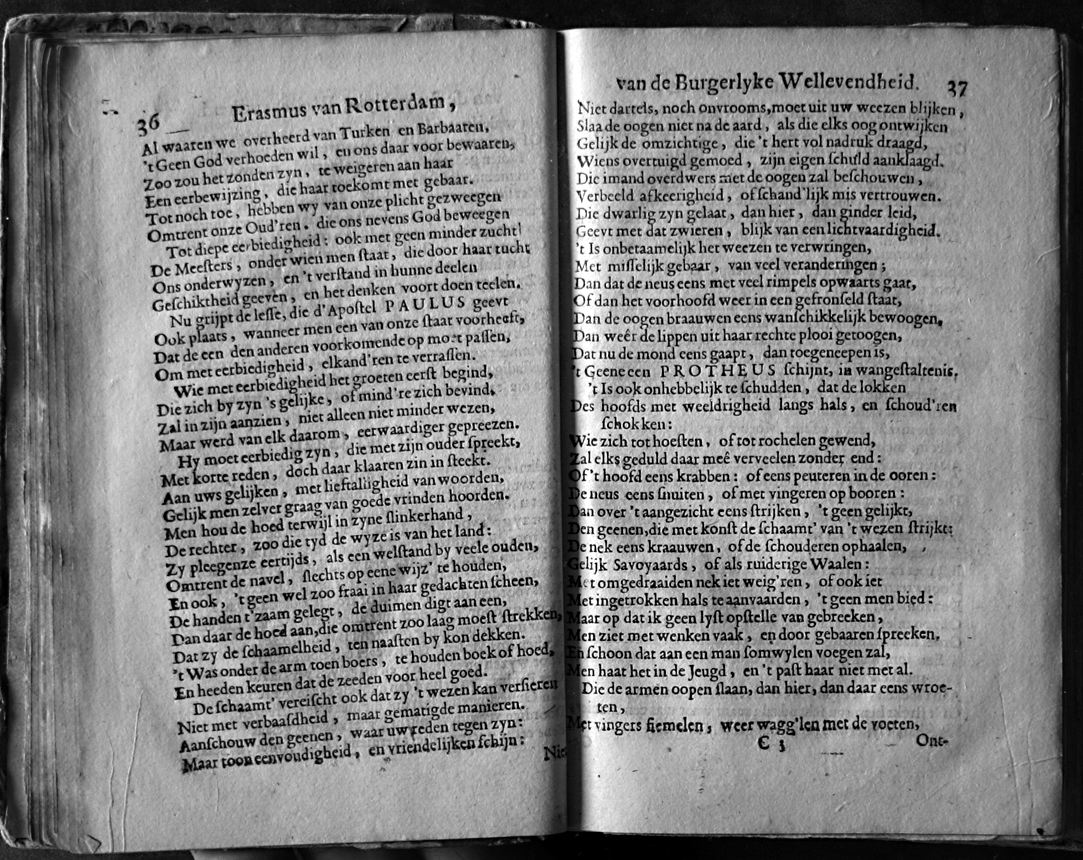 36
Erasmus van Rotterdam,
Al waaren we overheerd van Turken en Barbaaren,
't Geen God verhoeden wil, en ons daar voor bewaaren,
Zoo zou het zonden zyn, te weigeren aan haar
Een eerbewijzing, die haar toekomt met gebaar.
Tot noch toe, hebben wy van onze plicht gezweegen
Omtrent onze Oud'ren. die ons nevens God beweegen
Tot diepe eerbiedigheid: ook met geen minder zucht
De Meesters, onder wien men staat, die door haar tucht
Ons onderwyzen, en 't verstand in hunne deelen
Geschiktheid geeven, en het denken voort doen teelen.
Nu grijpt de lesse, die d'Apostel PAULUS geevt
Ook plaats, wanneer men een van onze staat voorheeft,
Dat de een den anderen voorkomende op moet passen,
Om met eerbiedigheid, elkand'ren te verrassen.
Wie met eerbiedigheid het groeten eerst begind,
Die zich by zyn 's gelijke, of mind're zich bevind,
Zal in zijn aanzien, niet alleen niet minder wezen,
Maar werd van elk daarom, eerwaardiger gepreezen.
Hy moet eerbiedig zyn, die met zijn ouder spreekt,
Met korte reden, doch daar klaaren zin in steekt.
Aan uws gelijken, met lieftalligheid van woorden,
Gelijk men zelver graag van goede vrinden hoorden.
Men hou de hoed terwijl in zyne slinkerhand,
De rechter, zoo die tyd de wyze is van het land:
Zy pleegenze eertijds, als een welstand by veele ouden,
Omtrent de navel, slechts op eene wijz' te houden,
En ook, 't geen wel zoo fraai in haar gedachten scheen,
De handen t'zaam gelegt, de duimen digt aan een,
Dan daar de hoed aan, die omtrent zoo laag moest strekken,
Dat zy de schaamelheid, ten naasten by kon dekken.
't Was onder de arm toen boers, te houden boek of hoed,
En heeden keuren dat de zeeden voor heel goed.
De schaamt' vereischt ook dat zy 't wezen kan versieren
Niet met verbaasdheid, maar gematigde manieren.
Aanschouw den geenen, waar uw reden tegen zyn:
Maar toon eenvoudigheid, en vriendelijken schijn:
Nie
van de Burgerlyke Wellevendheid. 37
Niet dartels, noch onvrooms, moet uit uw weezen blijken,
Slaa de oogen niet na de aard, als die elks oog ontwijken
Gelijk de omzichtige, die 't hert vol nadruk draagd,
Wiens overtuigd gemoed, zijn eigen schuld aanklaagd.
Die imand overdwers met de oogen zal beschouwen,
Verbeeld afkeerigheid, of schand'lijk mis vertrouwen.
Die dwarlig zyn gelaat, dan hier, dan ginder leid,
Geevt met dat zwieren, blijk van een lichtvaardigheid.
't Is onbetaamelijk het weezen te verwringen,
Met misselijk gebaar, van veel veranderingen;
Dan dat de neus eens met veel rimpels opwaarts gaat,
Of dan het voorhoofd weer in een gefronseld staat,
Dan de oogen braauwen eens wanschikkelijk bewoogen,
Dan weêr de lippen uit haar rechte plooi getoogen,
Dat nu de mond eens gaapt, dan toegeneepen is,
't Geene een PROTHEUS schijnt, in wangestaltenis.
't Is ook onhebbelijk te schudden, dat de lokken
Des hoofds met weeldrigheid langs hals, en schoud'ren
schokken:
Wie zich tot hoesten, of tot rochelen gewend,
Zal elks geduld daar meê verveelen zonder end:
Of 't hoofd eens krabben: of eens peuteren in de ooren:
De neus eens snuiten, of met vingeren op booren:
Dan over 't aangezicht eens strijken, 't geen gelijkt,
Den geenen, die met konst de schaamt' van 't wezen strijkt:
De nek eens kraauwen, of de schouderen ophaalen,
Gelijk Savoyaards, of als ruiderige Waalen:
Met omgedraaiden nek iet weig'ren, of ook iet
Met ingetrokken hals te aanvaarden, 't geen men bied:
Maar op dat ik geen lyst opstelle van gebreeken,
Men ziet met wenken vaak, en door gebaaren spreeken,
En schoon dat aan een man somwylen voegen zal,
Men haar het in de Jeugd, en 't past haar niet met al.
Die de armen oopen slaan, dan hier, dan daar eens wroe-
ten,
Met vingers fiemelen, weer wagg'len met de voeten,
C 3
Ont-